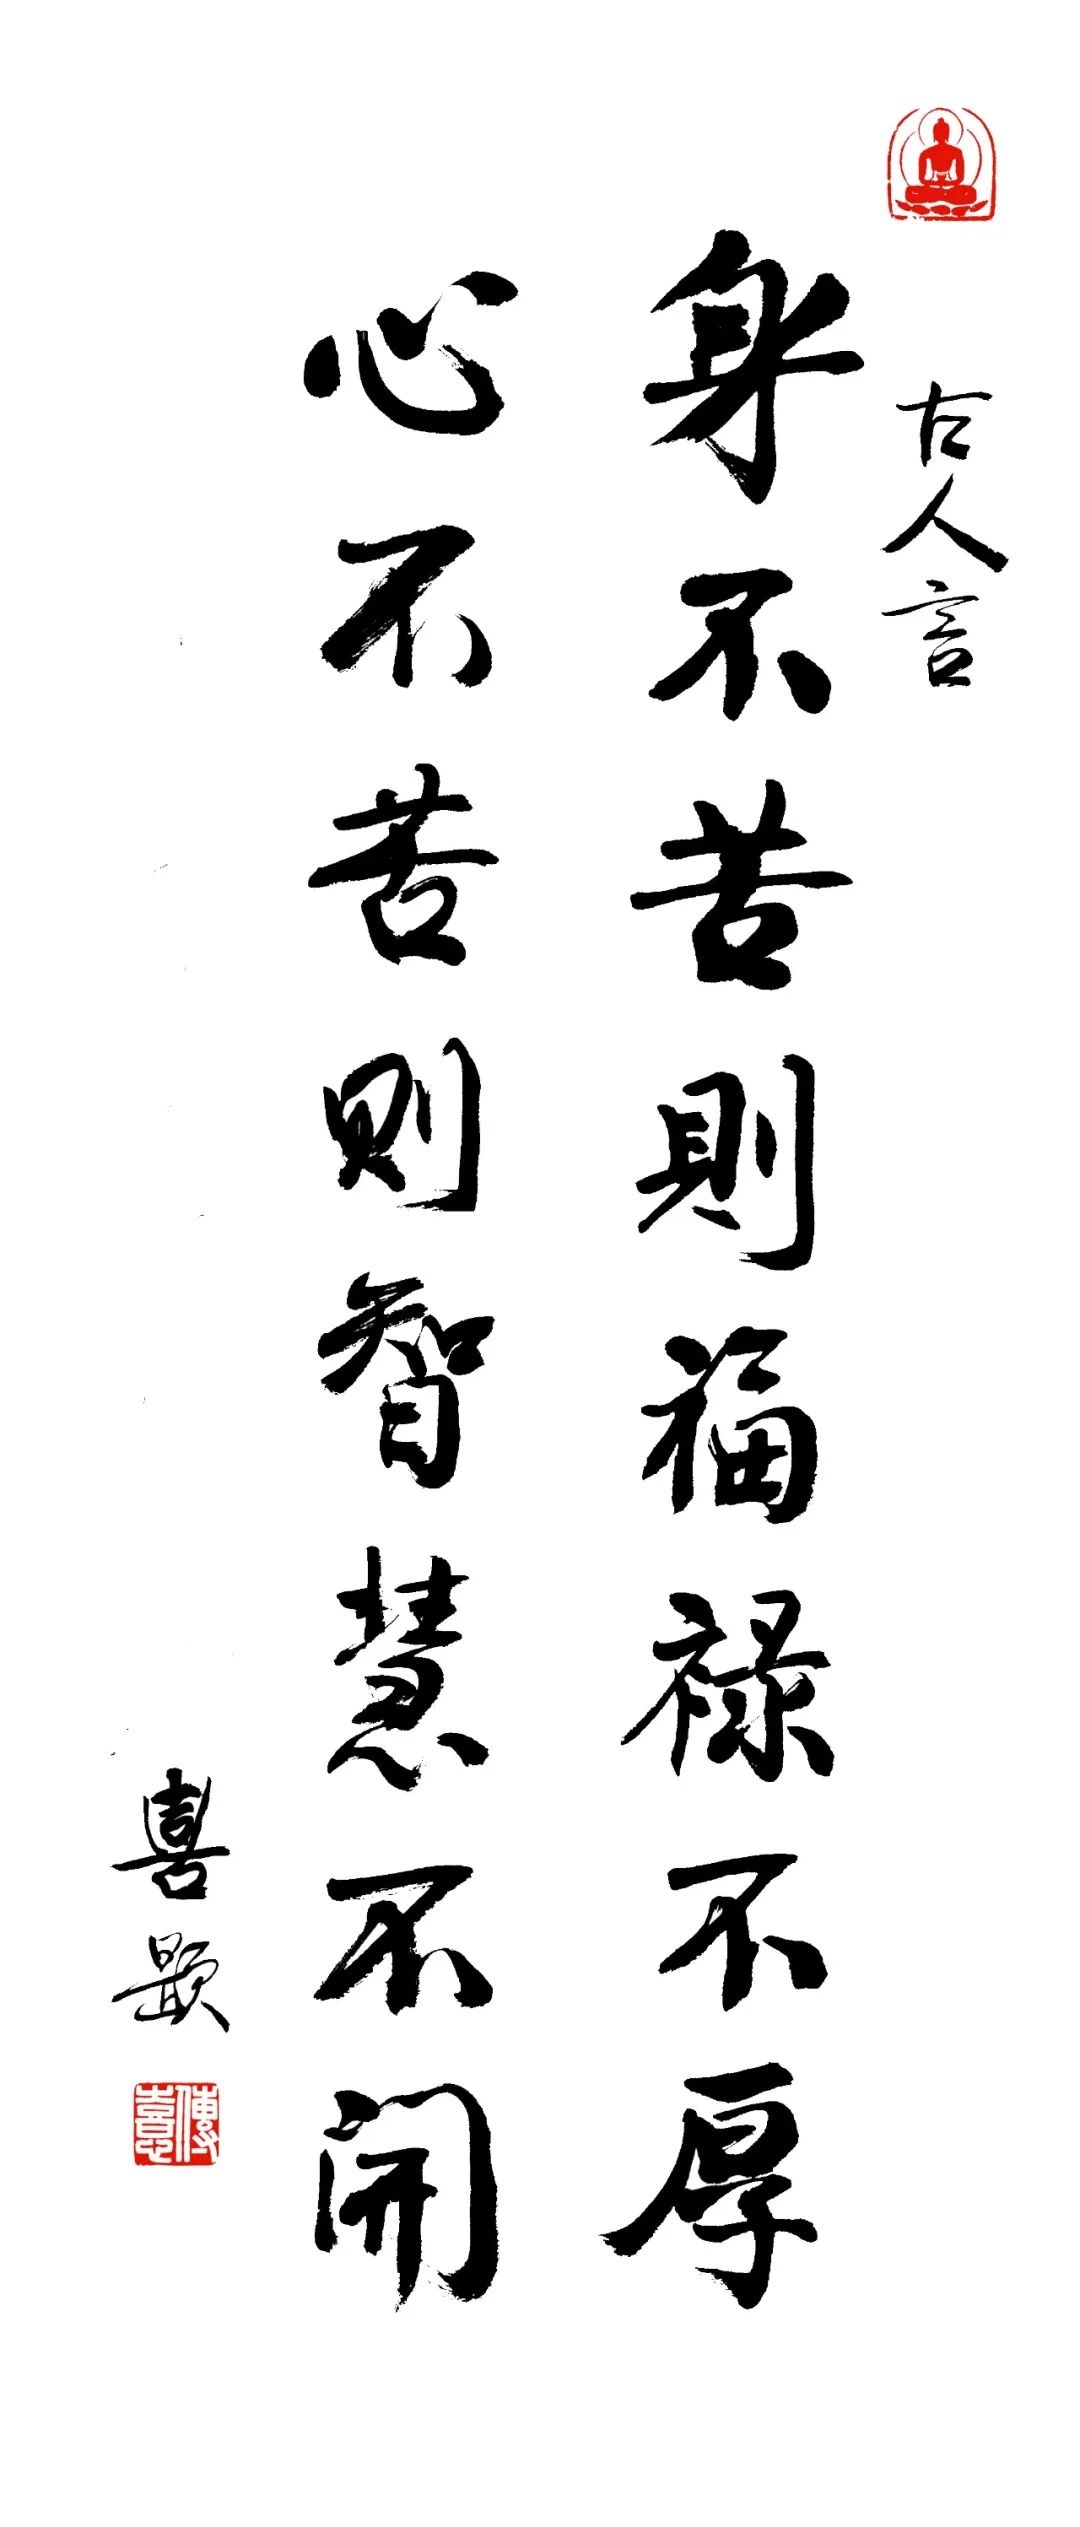 古人言
身不苦則福禄不厚
心不苦則智慧不開
喜題
傳喜